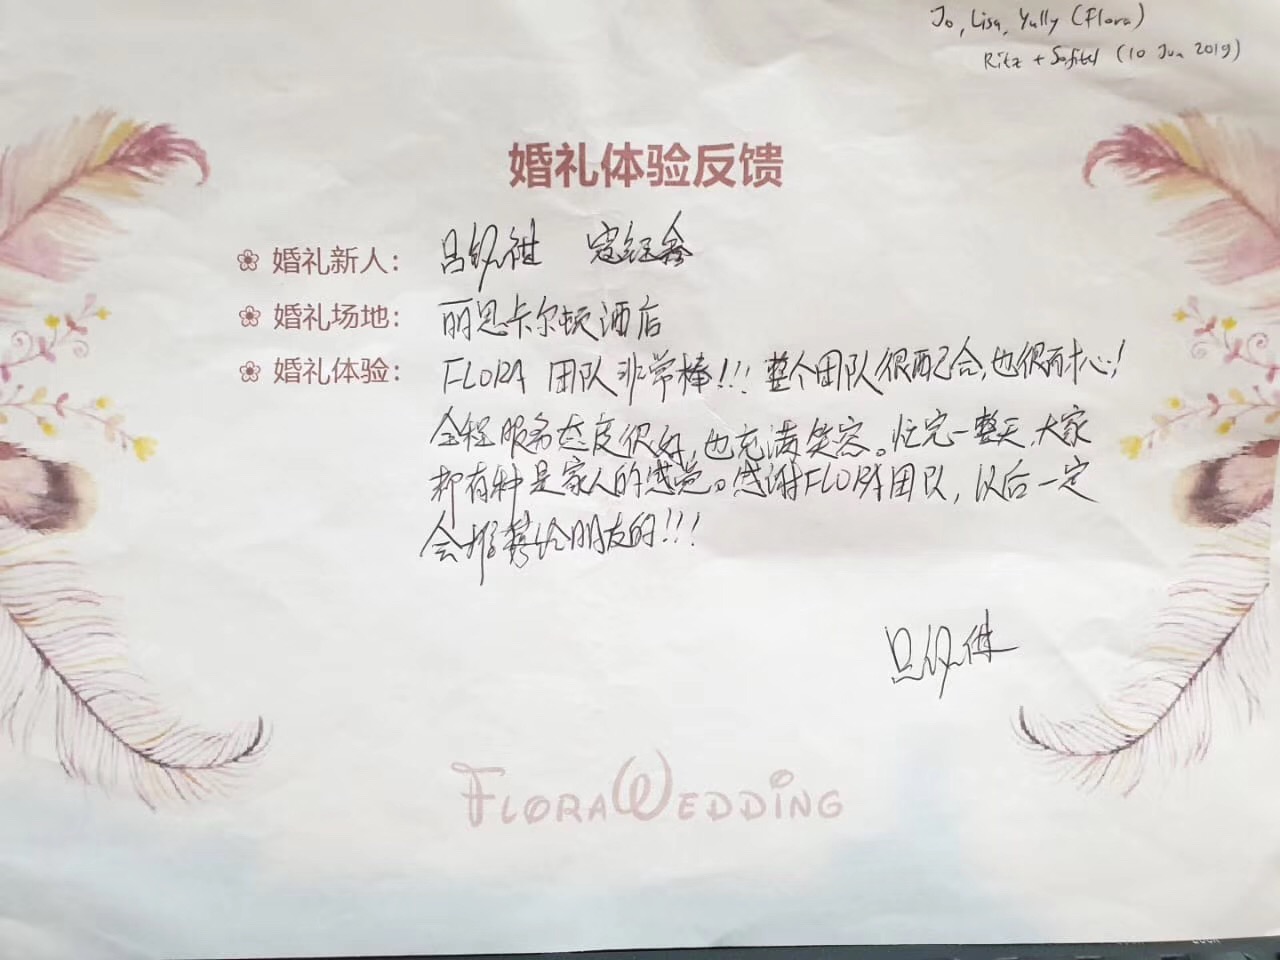 Jo, Lisa, Yully (Flora)
Ritz + Sofitel (10 Jun 2019)
婚礼体验反馈
婚礼新人： 吕
婚礼场地： 丽思卡尔顿酒店
婚礼体验： FLORA 团队非常棒!!! 整个团队很配合,也很耐心!
全程服务态度很好,也充满笑容。忙完一整天,大家
都有种是家人的感觉。感谢FLORA团队，以后一定
会推荐给朋友的!!!
吕
FLORA WEDDING